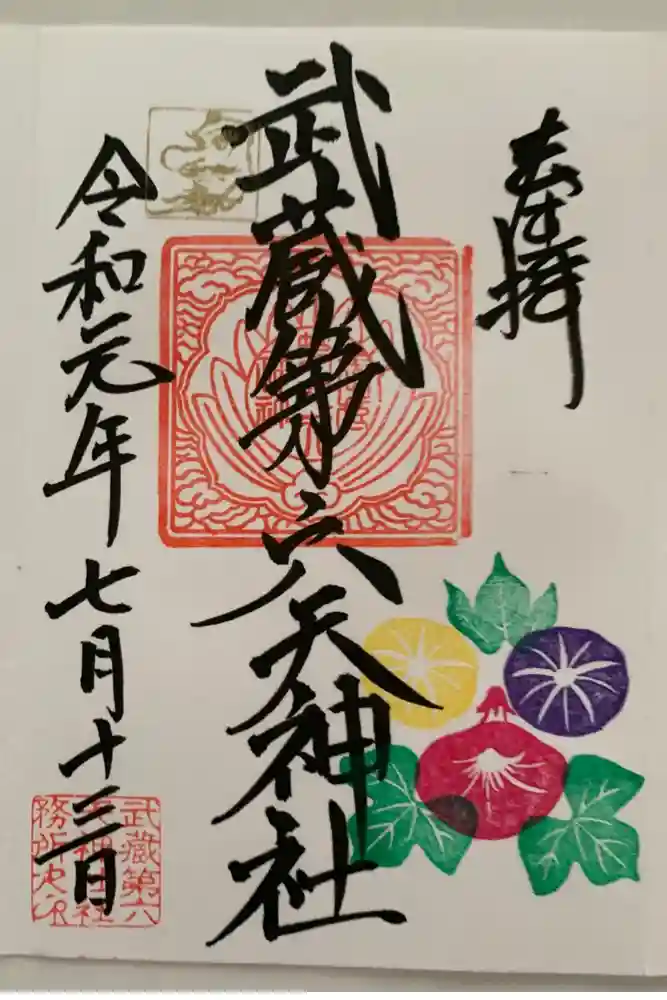 奉拝
武蔵第六天神社
令和元年七月十三日
武蔵第六
天神社社
務所之印